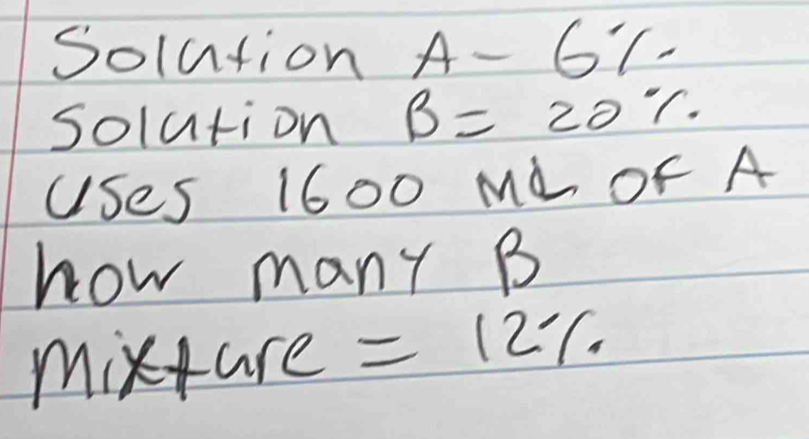 Solution A- 6%
Solution B= 20%.
Uses 1600 ML OF A
how many B
Mixture = 12%.